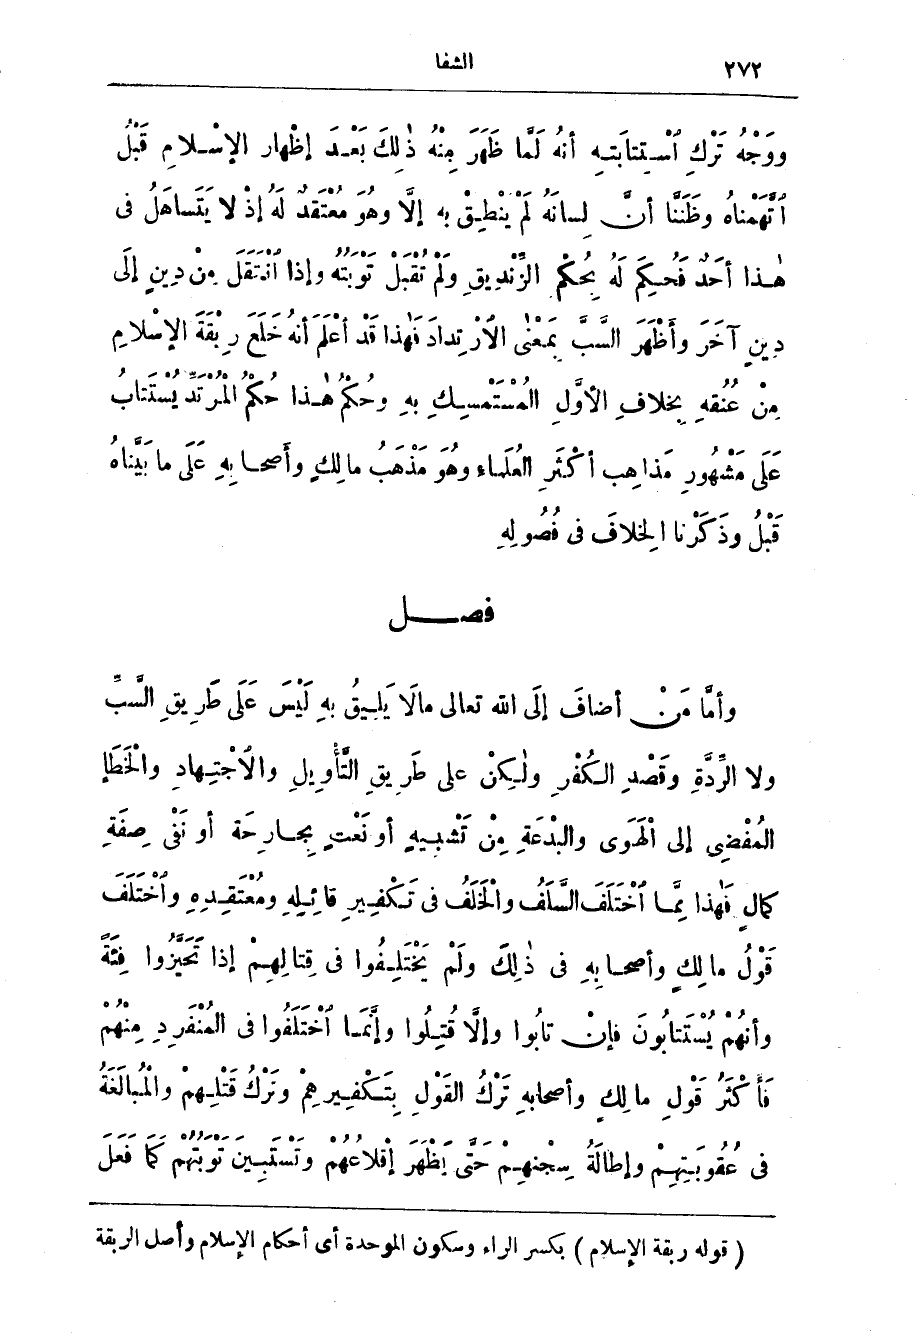 ٢٧٢ الشفا
ووَجْهُ تَرْكِ ٱسْتِتابَتِهِ أنهُ لَمَّا ظَهَرَ مِنْهُ ذٰلِكَ بَعْدَ إظْهارِ الإسْلامِ قَبْلُ
ٱتَّهَمْناهُ وظَنَنَّا أنَّ لِسانَهُ لَمْ يَنْطِقْ به إلَّا وهُوَ مُعْتَقِدٌ لَهُ إذْ لا يَتَساهَلُ فى
هٰذا أحَدٌ فَحُكِمَ لَهُ بِحُكْمِ الزِّنْدِيقِ ولَمْ تُقْبَلْ تَوْبَتُهُ وإذا ٱنْتَقَلَ مِنْ دِينٍ إلَى
دِينٍ آخَرَ وأَظْهَرَ السَّبَّ بِمَعْنَى الٱرْتِدادِ فَهٰذا قَدْ أَعْلَمَ أنهُ خَلَعَ رِبْقَةَ الإسْلامِ
مِنْ عُنُقِهِ بخِلافِ الأوَّلِ المُسْتَمْسِكِ بِهِ وحُكْمُ هٰذا حُكْمُ المُرْتَدِّ يُسْتَتابُ
عَلَى مَشْهُورِ مَذاهِب أكْثَرِ العُلَماءِ وهُوَ مَذْهَبُ مالِكٍ وأَصحابِهِ عَلَى ما بَيَّناهُ
قَبْلُ وذَكَرْنا الخِلافَ فى فُصُولِهِ
فصل
وأمَّا مَنْ أضافَ إلَى الله تعالى مالَا يَلِيقُ بهِ لَيْسَ عَلَى طَرِيقِ السَّبِّ
ولا الرِّدَّةِ وقَصْدِ الكُفْرِ ولٰكِنْ على طَرِيقِ التَّأْوِيلِ والٱجْتِهادِ والْخَطَإِ
المُفْضِى إلى الْهَوَى والبِدْعَةِ مِنْ تَشْبِيهٍ أو نَعْتٍ بِجارِحَة أو نَفْىِ صِفَةِ
كَمالٍ فَهٰذا مِمَّا ٱخْتَلَفَ السَّلَفُ والْخَلَفُ فى تَكْفِيرِ قائِلِهِ ومُعْتَقِدِهِ وٱخْتَلَفَ
قَوْلُ مالِكٍ وأصحابِهِ فى ذٰلِكَ ولَمْ يَخْتَلِفُوا فى قِتالِهِمْ إذا تَحَيَّزُوا فِئَةً
وأنهُمْ يُسْتَتابُونَ فإنْ تابُوا وإلَّا قُتِلُوا وإنَّما ٱخْتَلَفُوا فى المُنْفَرِدِ مِنْهُمْ
فَأَكْثَرُ قَوْلِ مالِكٍ وأصحابهِ تَرْكُ القَوْلِ بِتَكْفِيرِهِمْ وتَرْكُ قَتْلِهِمْ والْمُبالَغَةُ
فى عُقُوبَتِهِمْ وإطالَةُ سِجْنِهِمْ حَتَّى يَظْهَرَ إقْلاعُهُمْ وتَسْتَبِينَ تَوْبَتُهُمْ كَما فَعَلَ
( قوله ربقة الإسلام ) بكسر الراء وسكون الموحدة أى أحكام الإسلام وأصل الربقة